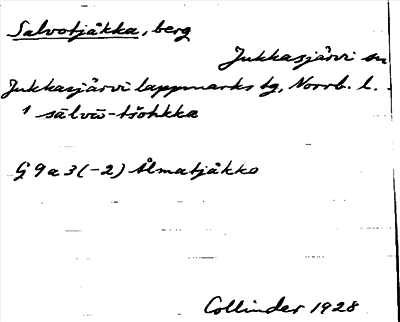 Salvotjåkka, berg
Jukkasjärvi sn
Jukkasjärvi lappmarks tg, Norrb. l.
G 9 a 3 (-2) Almatjåkko
Collinder 1928